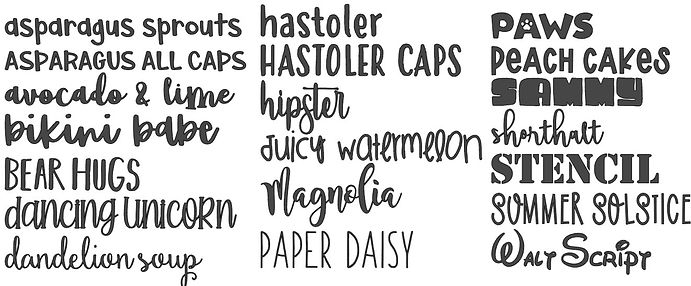 asparagus sprouts
ASPARAGUS ALL CAPS
avocado & lime
bikini babe
BEAR HUGS
dancing unicorn
dandelion soup
hastoler
HASTOLER CAPS
hipster
juicy watermelon
Magnolia
PAPER DAISY
PAWS
PEACH CAKES
SAMMY
shorthalt
STENCIL
SUMMER SOLSTICE
Walt Script